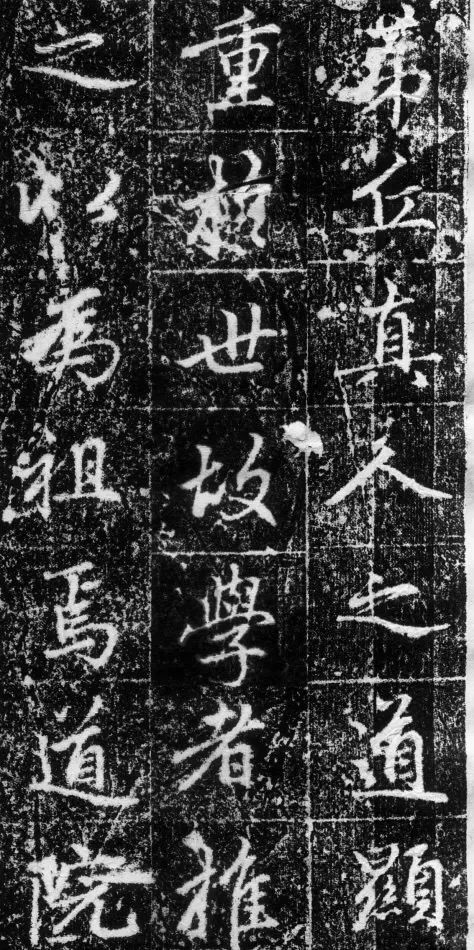 第丘真人之道顯
重於世故學者推
之以為祖焉道院